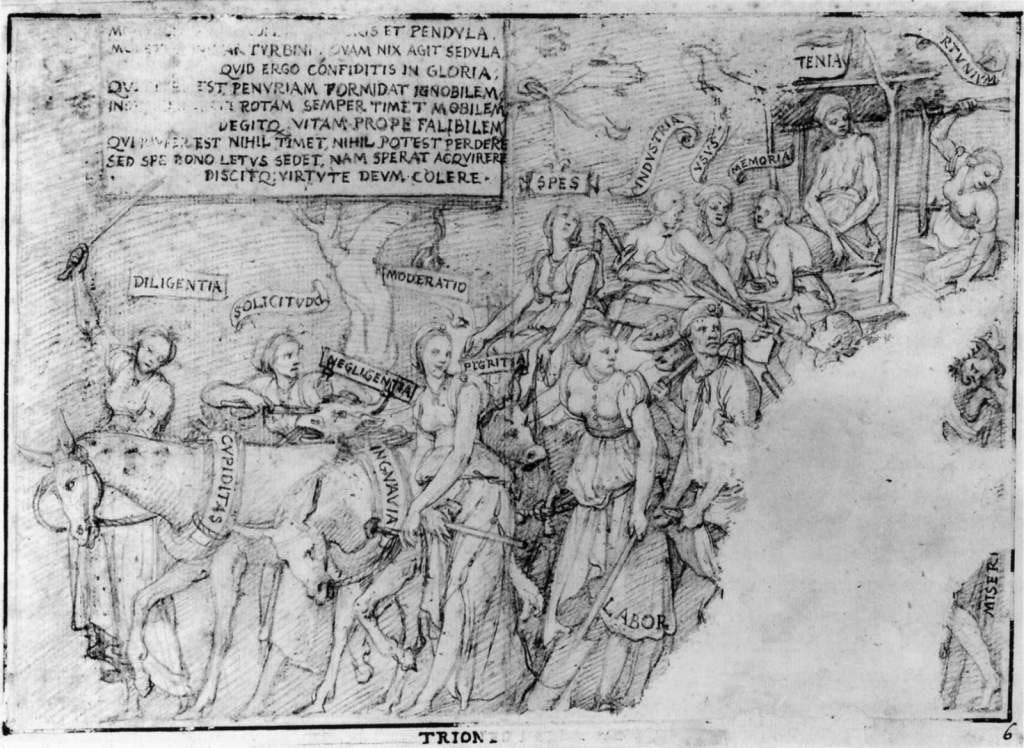 ET PENDVLA.
TVRBINI. QVAM NIX AGIT SEDVLA
QVID ERGO CONFIDITIS IN GLORIA,
EST PENVRIAM FORMIDAT IGNOBILEM,
ROTAM SEMPER TIMET MOBILEM
DEGITQ VITAM PROPE FALIBILEM
EST NIHIL TIMET, NIHIL POTEST PERDERE
SED SPE BONO LETVS SEDET, NAM SPERAT ACQVIRERE
DISCITQ; VIRTVTE DEVM COLERE.
TENIA
RTVNIVM
INDVSTRIA
VSVS
MEMORIA
SPES
DILIGENTIA
SOLICITVDO
MODERATIO
NEGLIGENTIA
PIGRITIA
CVPIDITAS
INGNAVIA
LABOR
MISERI
TRION.
6